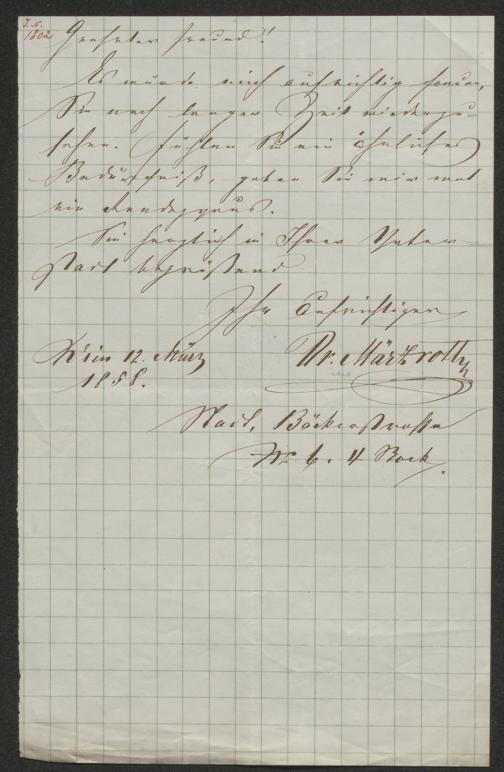 J. N.
1802
Geehrter Freund!
Es würde mich aufrichtig freuen,
Sie nach langer Zeit wiederzu-
sehen. Fühlen Sie ein ähnliches
Bedürfniß, geben Sie mir mal
ein Rendezvous.
Sie herzlich in Ihrer Vater-
stadt begrüßend
Ihr aufrichtiger
Dr. Märzroth
Wien 12. März
1858.
Stadt, Bäckerstrasse
Nr. 6. 4 Stock.